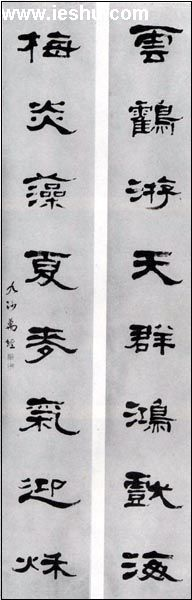 www.ieshu.com
雲鶴游天群鴻戲海
梅炎藻夏麥氣迎秋
九沙萬經